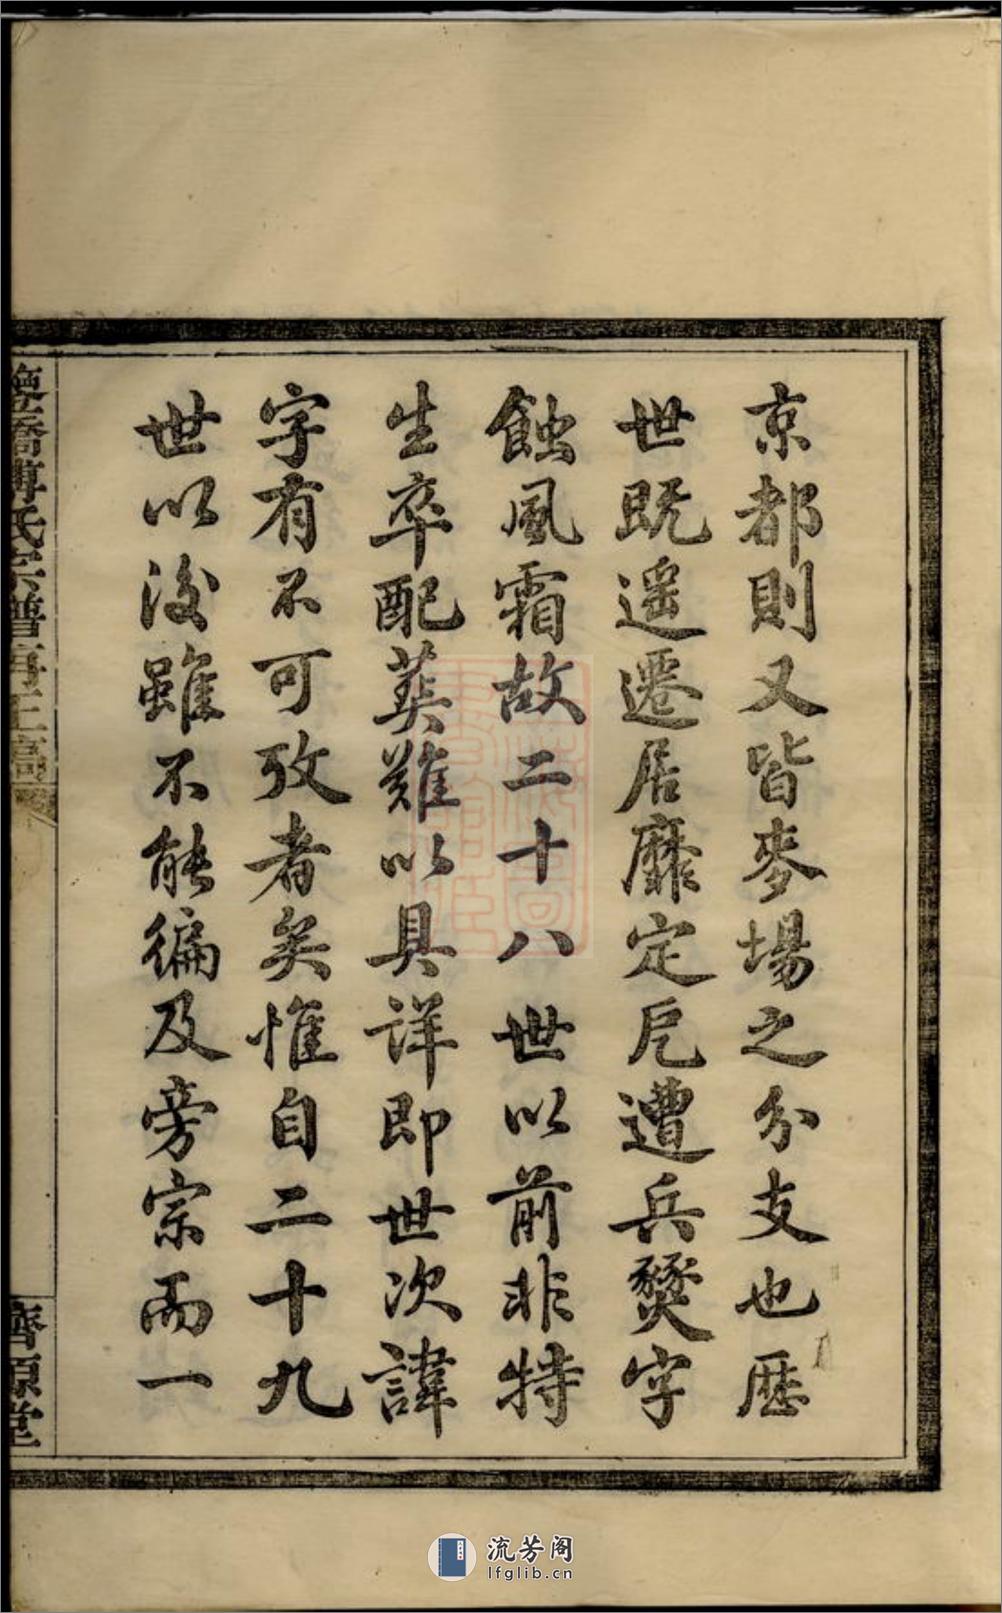 京都則又皆麥場之分支也歷
世既遥遷居靡定戹遭兵燹字
蝕風霜故二十八世以前非特
生卒配葬難以具詳即世次諱
字有不可攷者矣惟自二十九
世以後雖不能徧及旁宗而一
橋傅氏宗譜
齊源堂
流芳阁
lfglib.cn